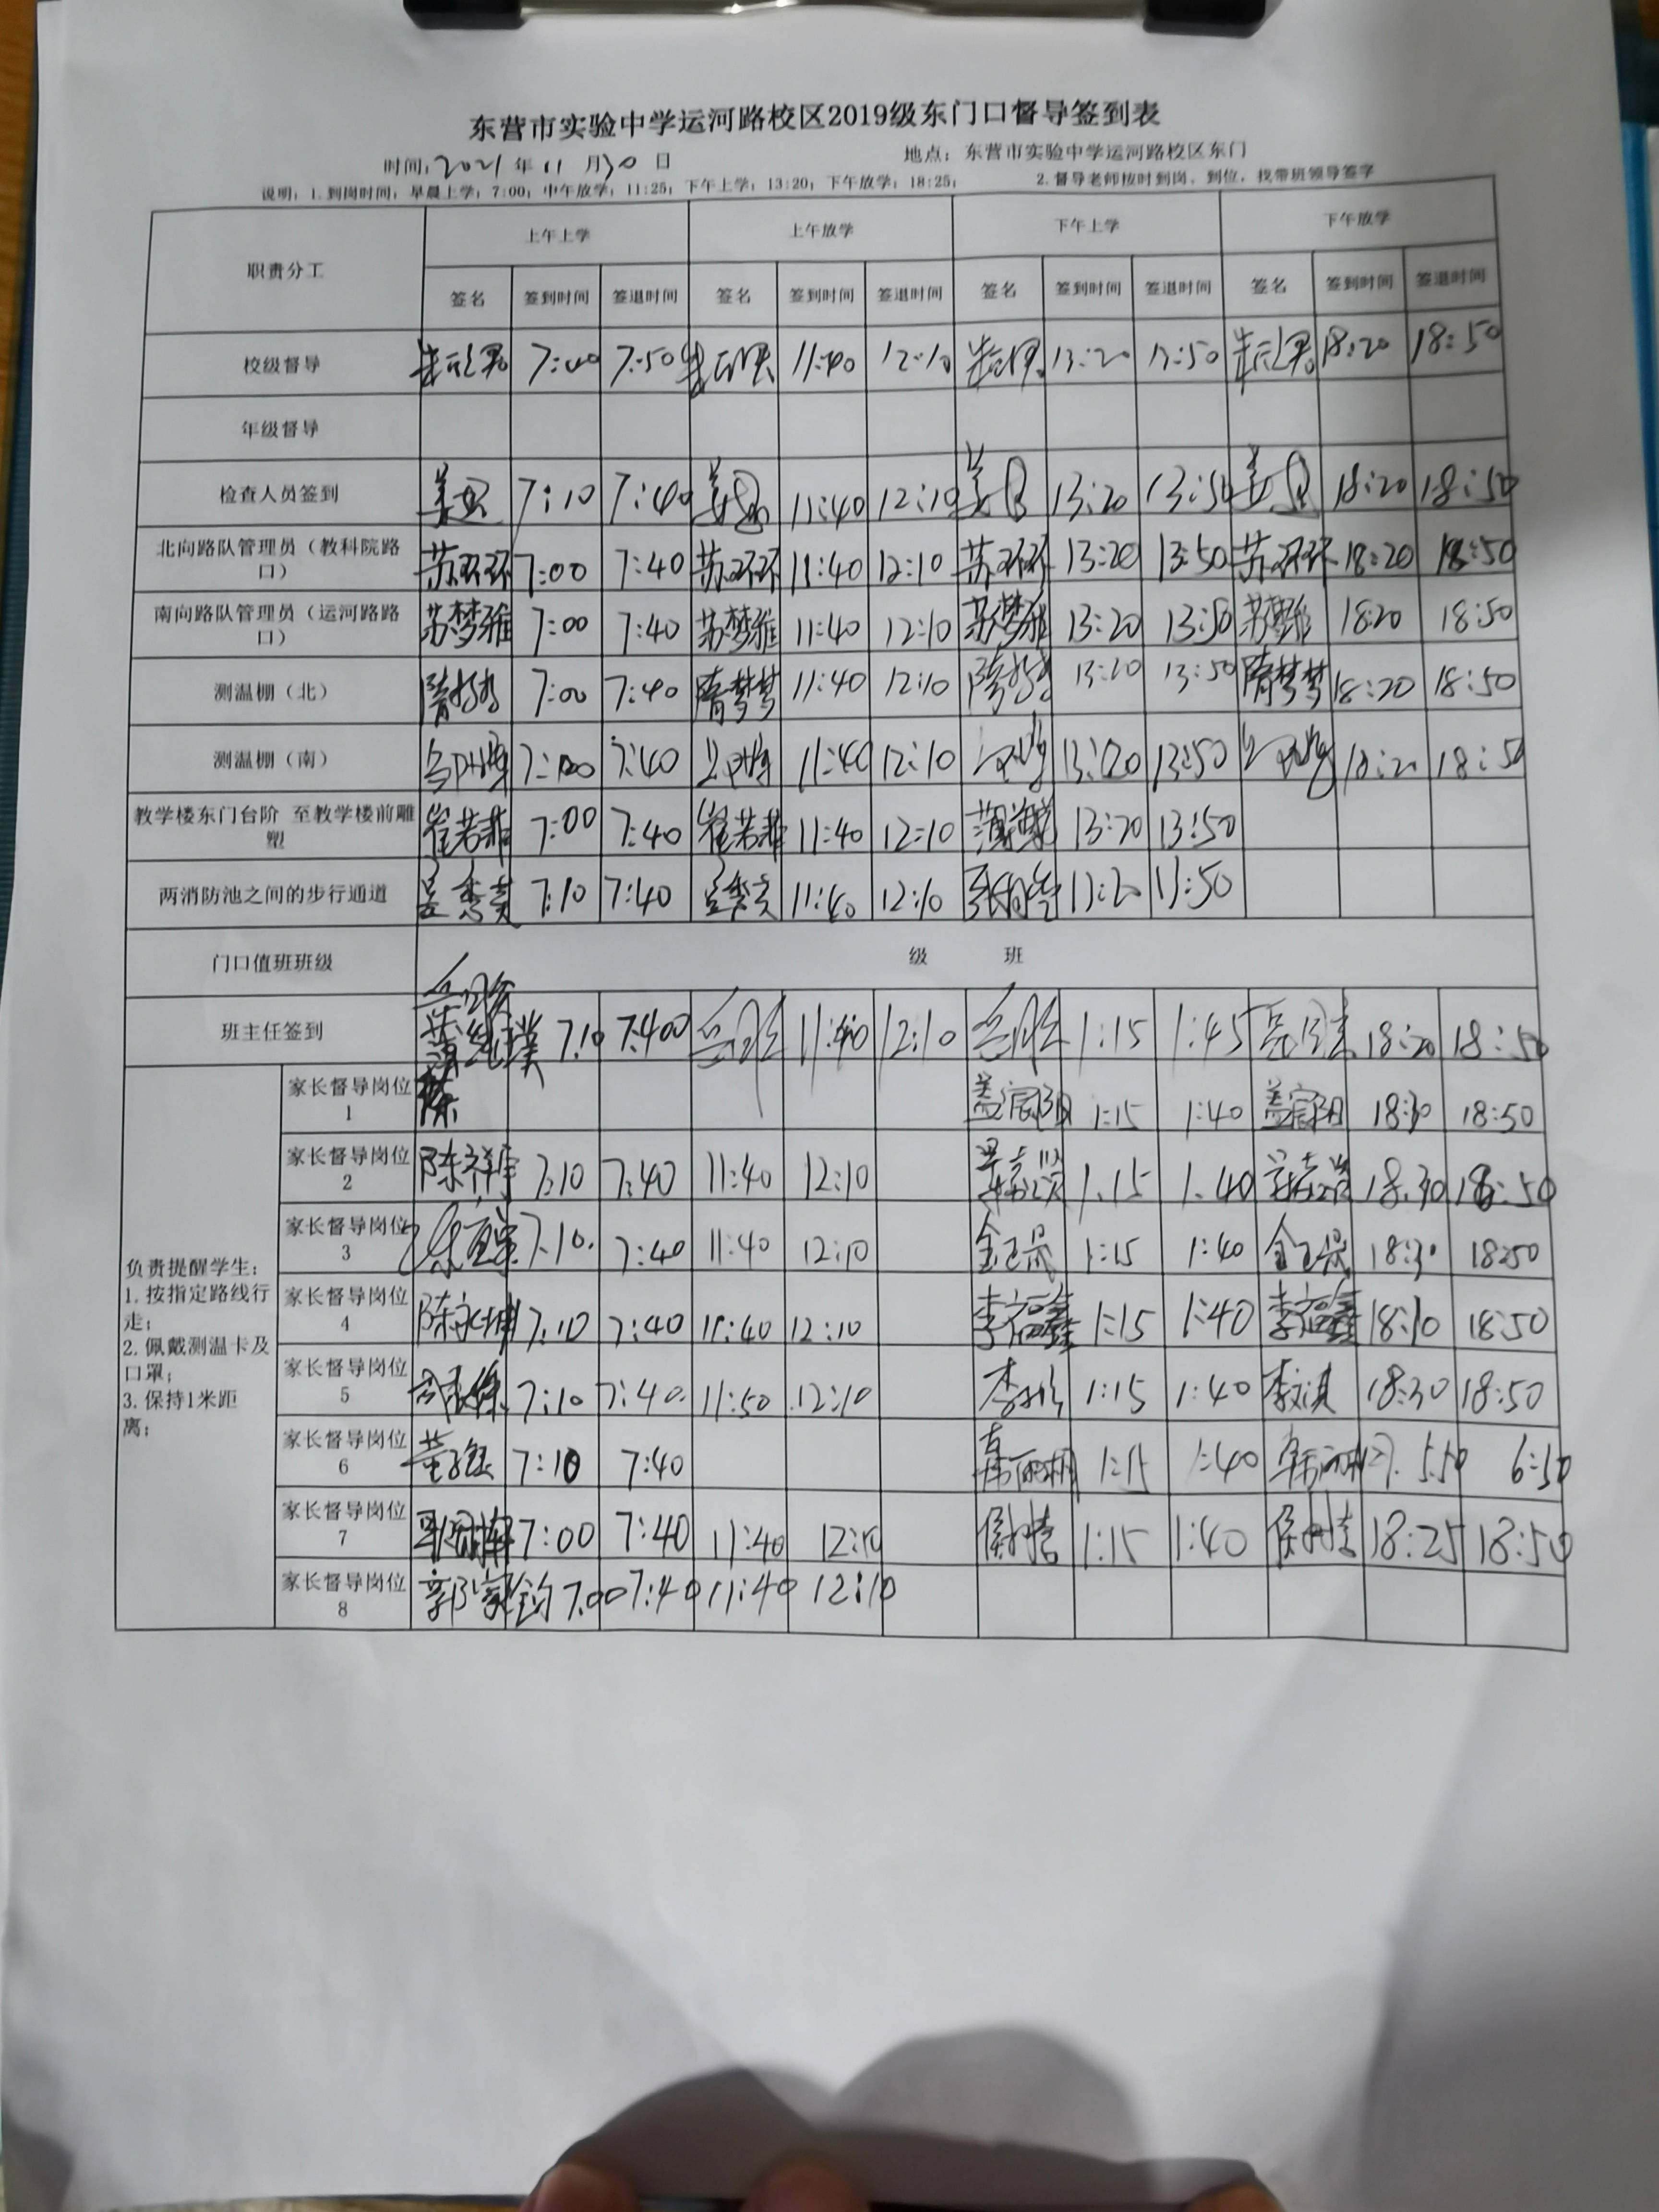 东营市实验中学运河路校区2019级东门口督导签到表
时间：2021年11月30日 地点：东营市实验中学运河路校区东门
说明：1.到岗时间：早晨上学：7:00；中午放学：11:25；下午上学：13:20；下午放学：18:25； 2.督导老师按时到岗，到位，找带班领导签字
职责分工 上午上学 上午放学 下午上学 下午放学
签名 签到时间 签退时间 签名 签到时间 签退时间 签名 签到时间 签退时间 签名 签到时间 签退时间
校级督导 7:40 7:50 11:40 12:10 13:20 13:50 18:20 18:50
年级督导
检查人员签到 7:10 7:40 11:40 12:10 13:20 13:50 18:20 18:50
北向路队管理员（教科院路口） 苏环环 7:00 7:40 苏环环 11:40 12:10 苏环环 13:20 13:50 苏环环 18:20 18:50
南向路队管理员（运河路路口） 苏梦雅 7:00 7:40 苏梦雅 11:40 12:10 苏梦雅 13:20 13:50 苏梦雅 18:20 18:50
测温棚（北） 隋梦梦 7:00 7:40 隋梦梦 11:40 12:10 隋梦梦 13:20 13:50 隋梦梦 18:20 18:50
测温棚（南） 7:00 7:40 11:40 12:10 13:20 13:50 18:20 18:50
教学楼东门台阶 至教学楼前雕塑 崔若菲 7:00 7:40 崔若菲 11:40 12:10 13:20 13:50
两消防池之间的步行通道 7:10 7:40 11:40 12:10 13:20 13:50
门口值班班级 级 班
班主任签到 7:10 7:40 11:40 12:10 1:15 1:45 18:20 18:50
负责提醒学生：
1.按指定路线行走；
2.佩戴测温卡及口罩；
3.保持1米距离；
家长督导岗位1 盖宸阳 1:15 1:40 盖宸阳 18:30 18:50
家长督导岗位2 陈祥宇 7:10 7:40 11:40 12:10 1:15 1:40 18:30 18:50
家长督导岗位3 7:10 7:40 11:40 12:10 1:15 1:40 18:30 18:50
家长督导岗位4 陈永坤 7:10 7:40 11:40 12:10 李福鑫 1:15 1:40 李福鑫 18:10 18:50
家长督导岗位5 7:10 7:40 11:50 12:10 1:15 1:40 18:30 18:50
家长督导岗位6 7:10 7:40 1:15 1:40 5:50 6:50
家长督导岗位7 7:00 7:40 11:40 12:10 1:15 1:40 18:25 18:50
家长督导岗位8 郭家钧 7:00 7:40 11:40 12:10